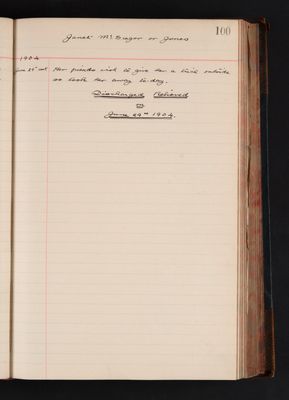 100
Janet McGregor or Jones
1904
June 29 Her friends wish to give her a trial outside
so took her away to-day.
Discharged Relieved
on
June 29th 1904.